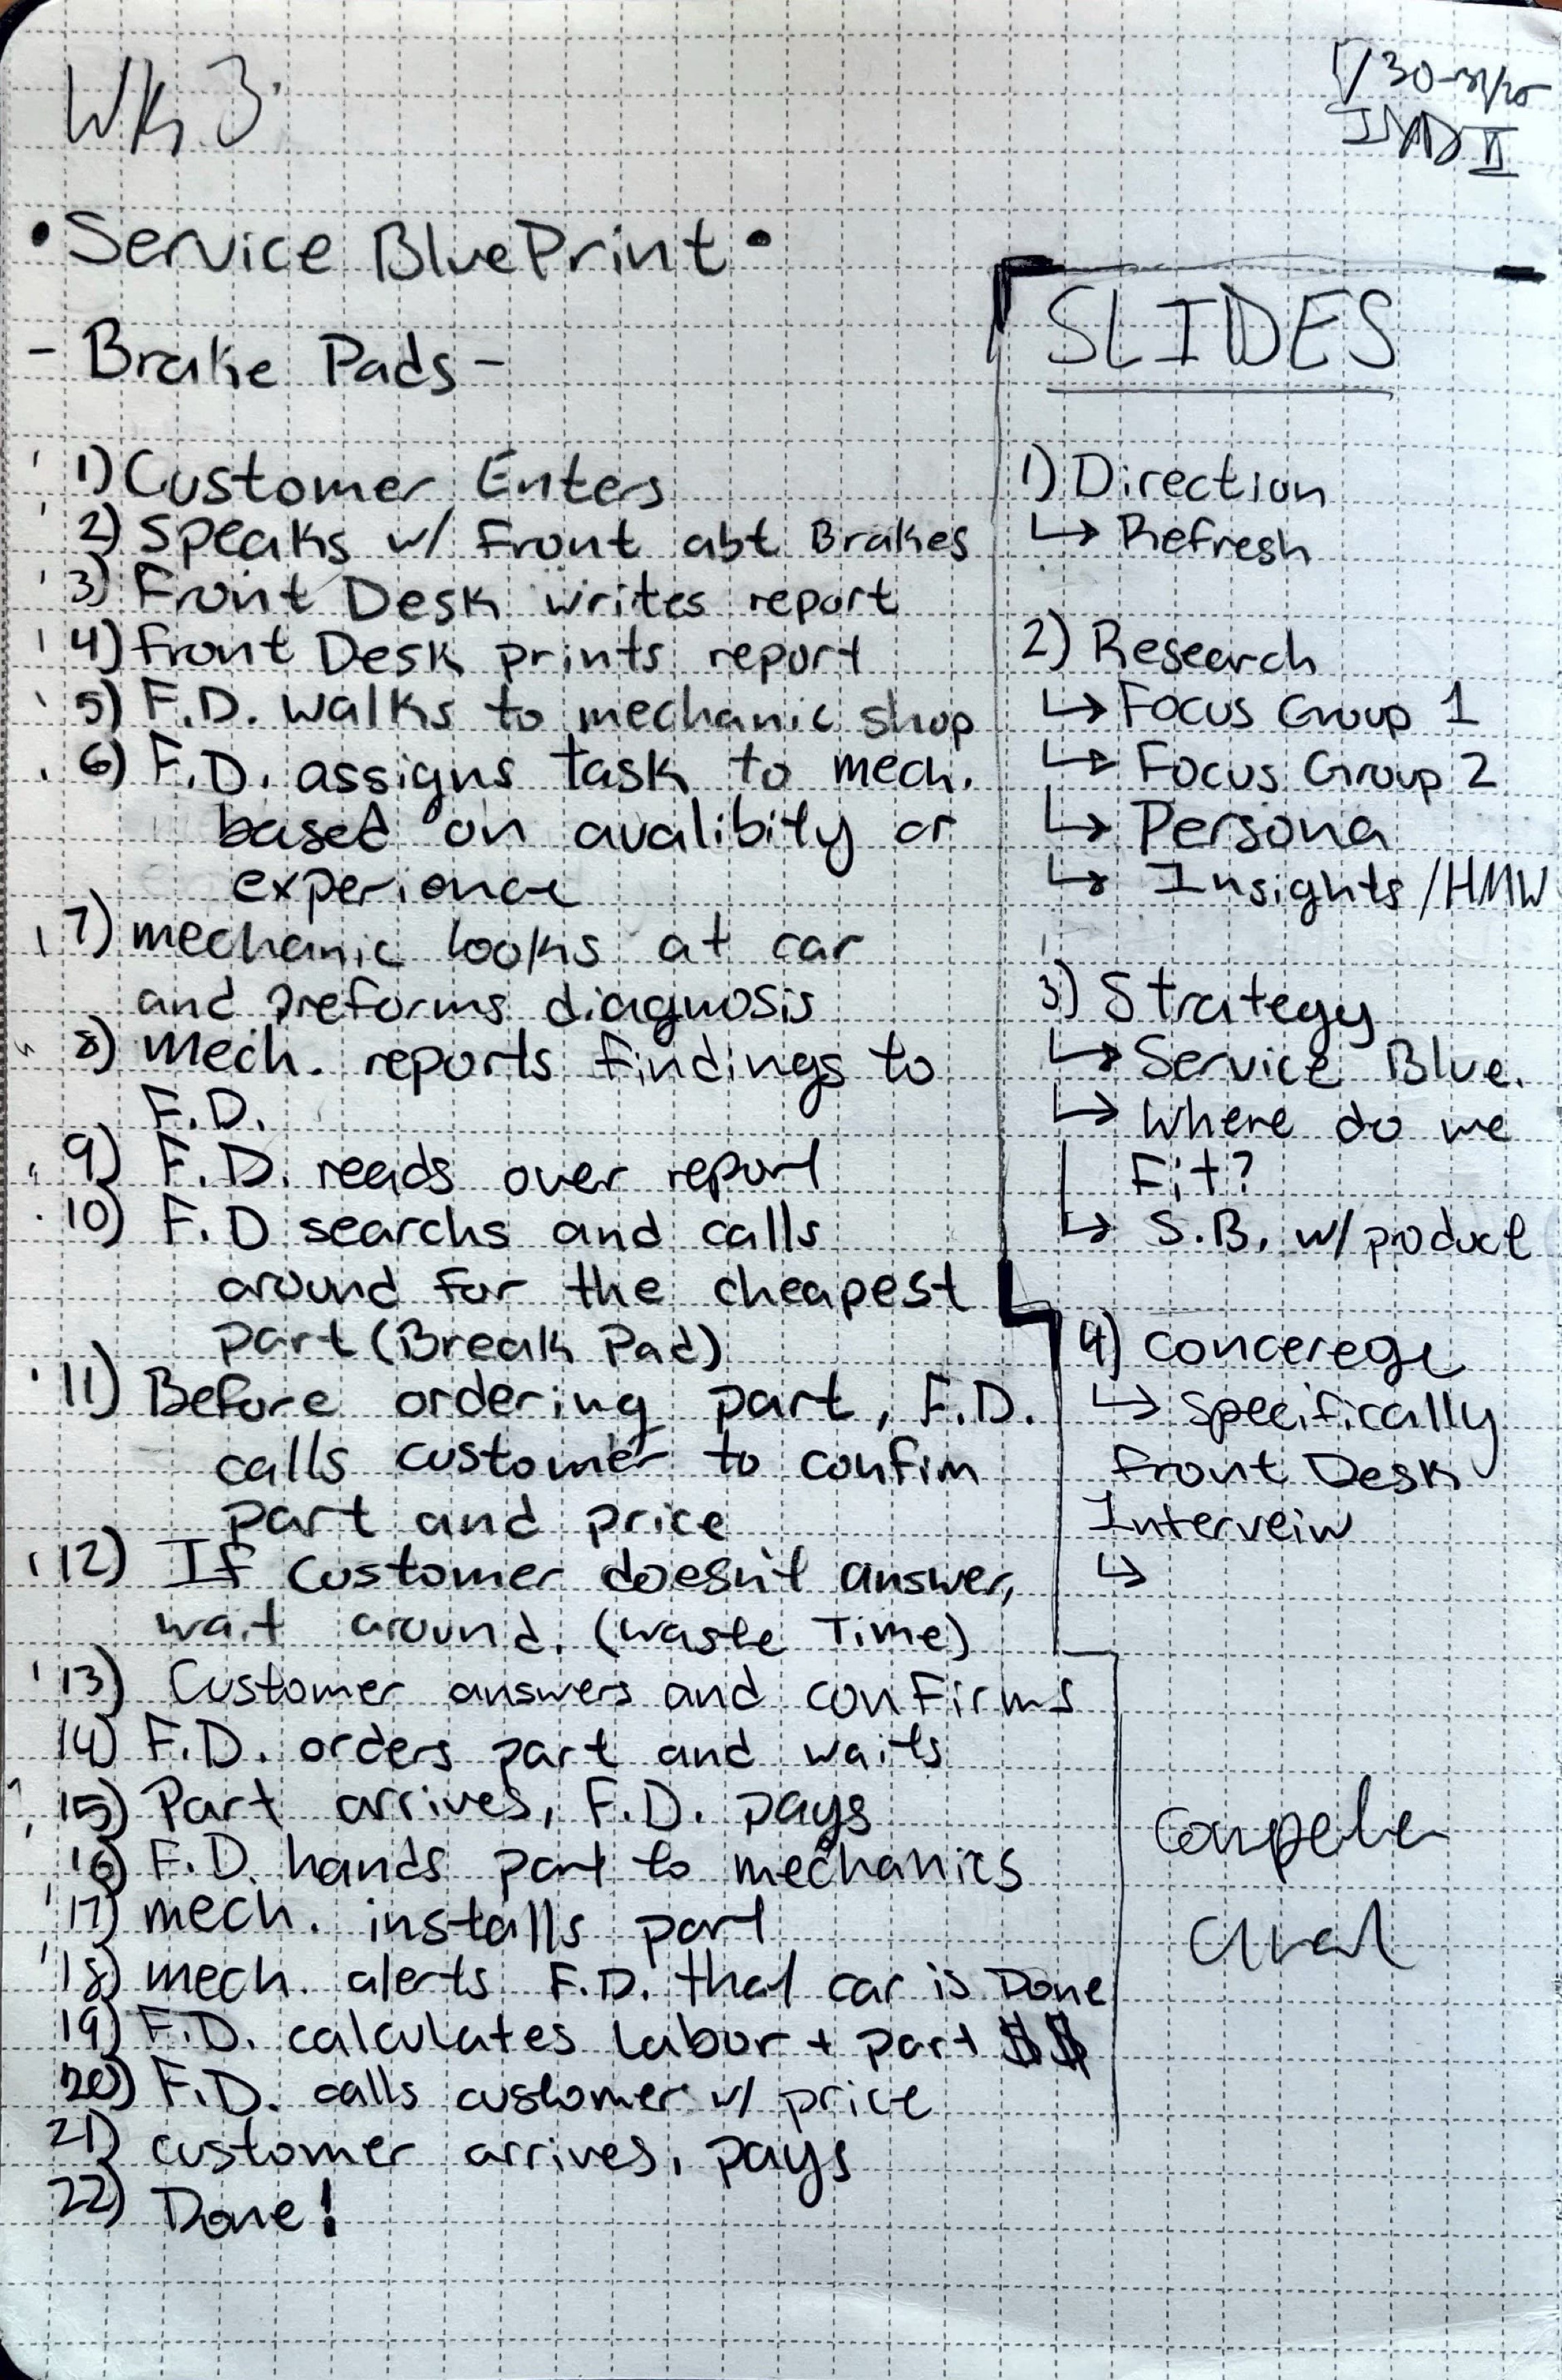 Wk 3
IXD II
• Service BluePrint •
- Brake Pads -
1) Customer Enters
2) Speaks w/ Front abt Brakes
3) Front Desk writes report
4) Front Desk prints report
5) F.D. walks to mechanic shop
6) F.D. assigns task to mech.
based on avalibity or
experience
7) mechanic looks at car
and preforms diagnosis
8) Mech. reports findings to
F.D.
9) F.D. reads over report
10) F.D searchs and calls
around for the cheapest
part (Break Pad)
11) Before ordering part, F.D.
calls customer to confim
part and price
12) If customer doesn't answer,
wait around. (waste Time)
13) Customer answers and confirms
14) F.D. orders part and waits
15) Part arrives, F.D. pays
16) F.D. hands part to mechanics
17) mech. installs part
18) mech. alerts F.D. that car is Done
19) F.D. calculates labor + part $$
20) F.D. calls customer w/ price
21) customer arrives, pays
22) Done!
SLIDES
1) Direction
↳ Refresh
2) Research
↳ Focus Group 1
↳ Focus Group 2
↳ Persona
↳ Insights/HMW
3) Strategy
↳ Service Blue.
↳ Where do we
Fit?
↳ S.B. w/ product
4) concerege
↳ specifically
front Desk
Interveiw
↳